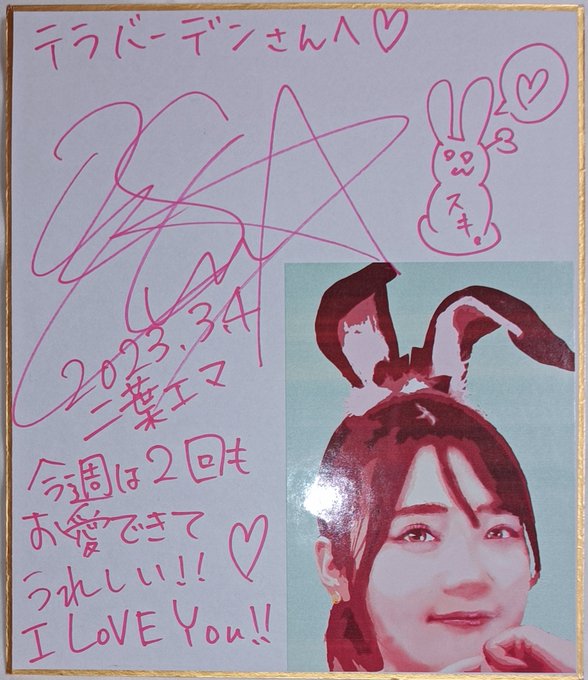 テラバーデンさんへ♡
スキ。
2023.3.4
二葉エマ
今週は2回も
お愛できて
うれしい!!
I LOVE You!!